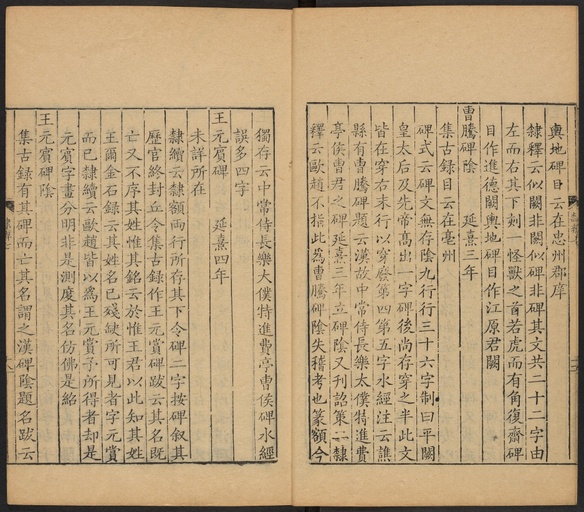 輿地碑目云在忠州郡庠
隸釋云似闕非闕似碑非碑其文共二十二字由
左而右其下刻一怪獸之首若虎而有角復齋碑
目作進德闕輿地碑目作江原君闕
曹騰碑陰　延熹三年
集古錄目云在亳州
碑式云碑文無存陰九行行三十六字制曰平闕
皇太后及先帝高出一字碑後尚存穿之半此文
皆在穿右末行以穿廢第四第五字水經注云譙
縣有曹騰碑題云漢故中常侍長樂太僕特進費
亭侯曹君之碑延熹三年立碑陰又刊詔策二隸
釋云歐趙不指此為曹騰碑陰失稽考也篆額今
獨存云中常侍長樂大僕特進費亭曹侯碑水經
誤多四字
王元賓碑　延熹四年
未詳所在
隸續云隸額兩行所存其下令碑二字按碑敘其
歷官終封丘令集古錄作王元賞碑跋云其名既
亡又不序其姓惟其銘云於惟王君以此知其姓
王爾金石錄云其姓名已殘缺所可見者字元賞
而已隸續云歐趙皆以為王元賞予所得者却是
元賓字畫分明非是測度其名仿佛是紹
王元賓碑陰
集古錄有其碑而亡其名謂之漢碑陰題名跋云